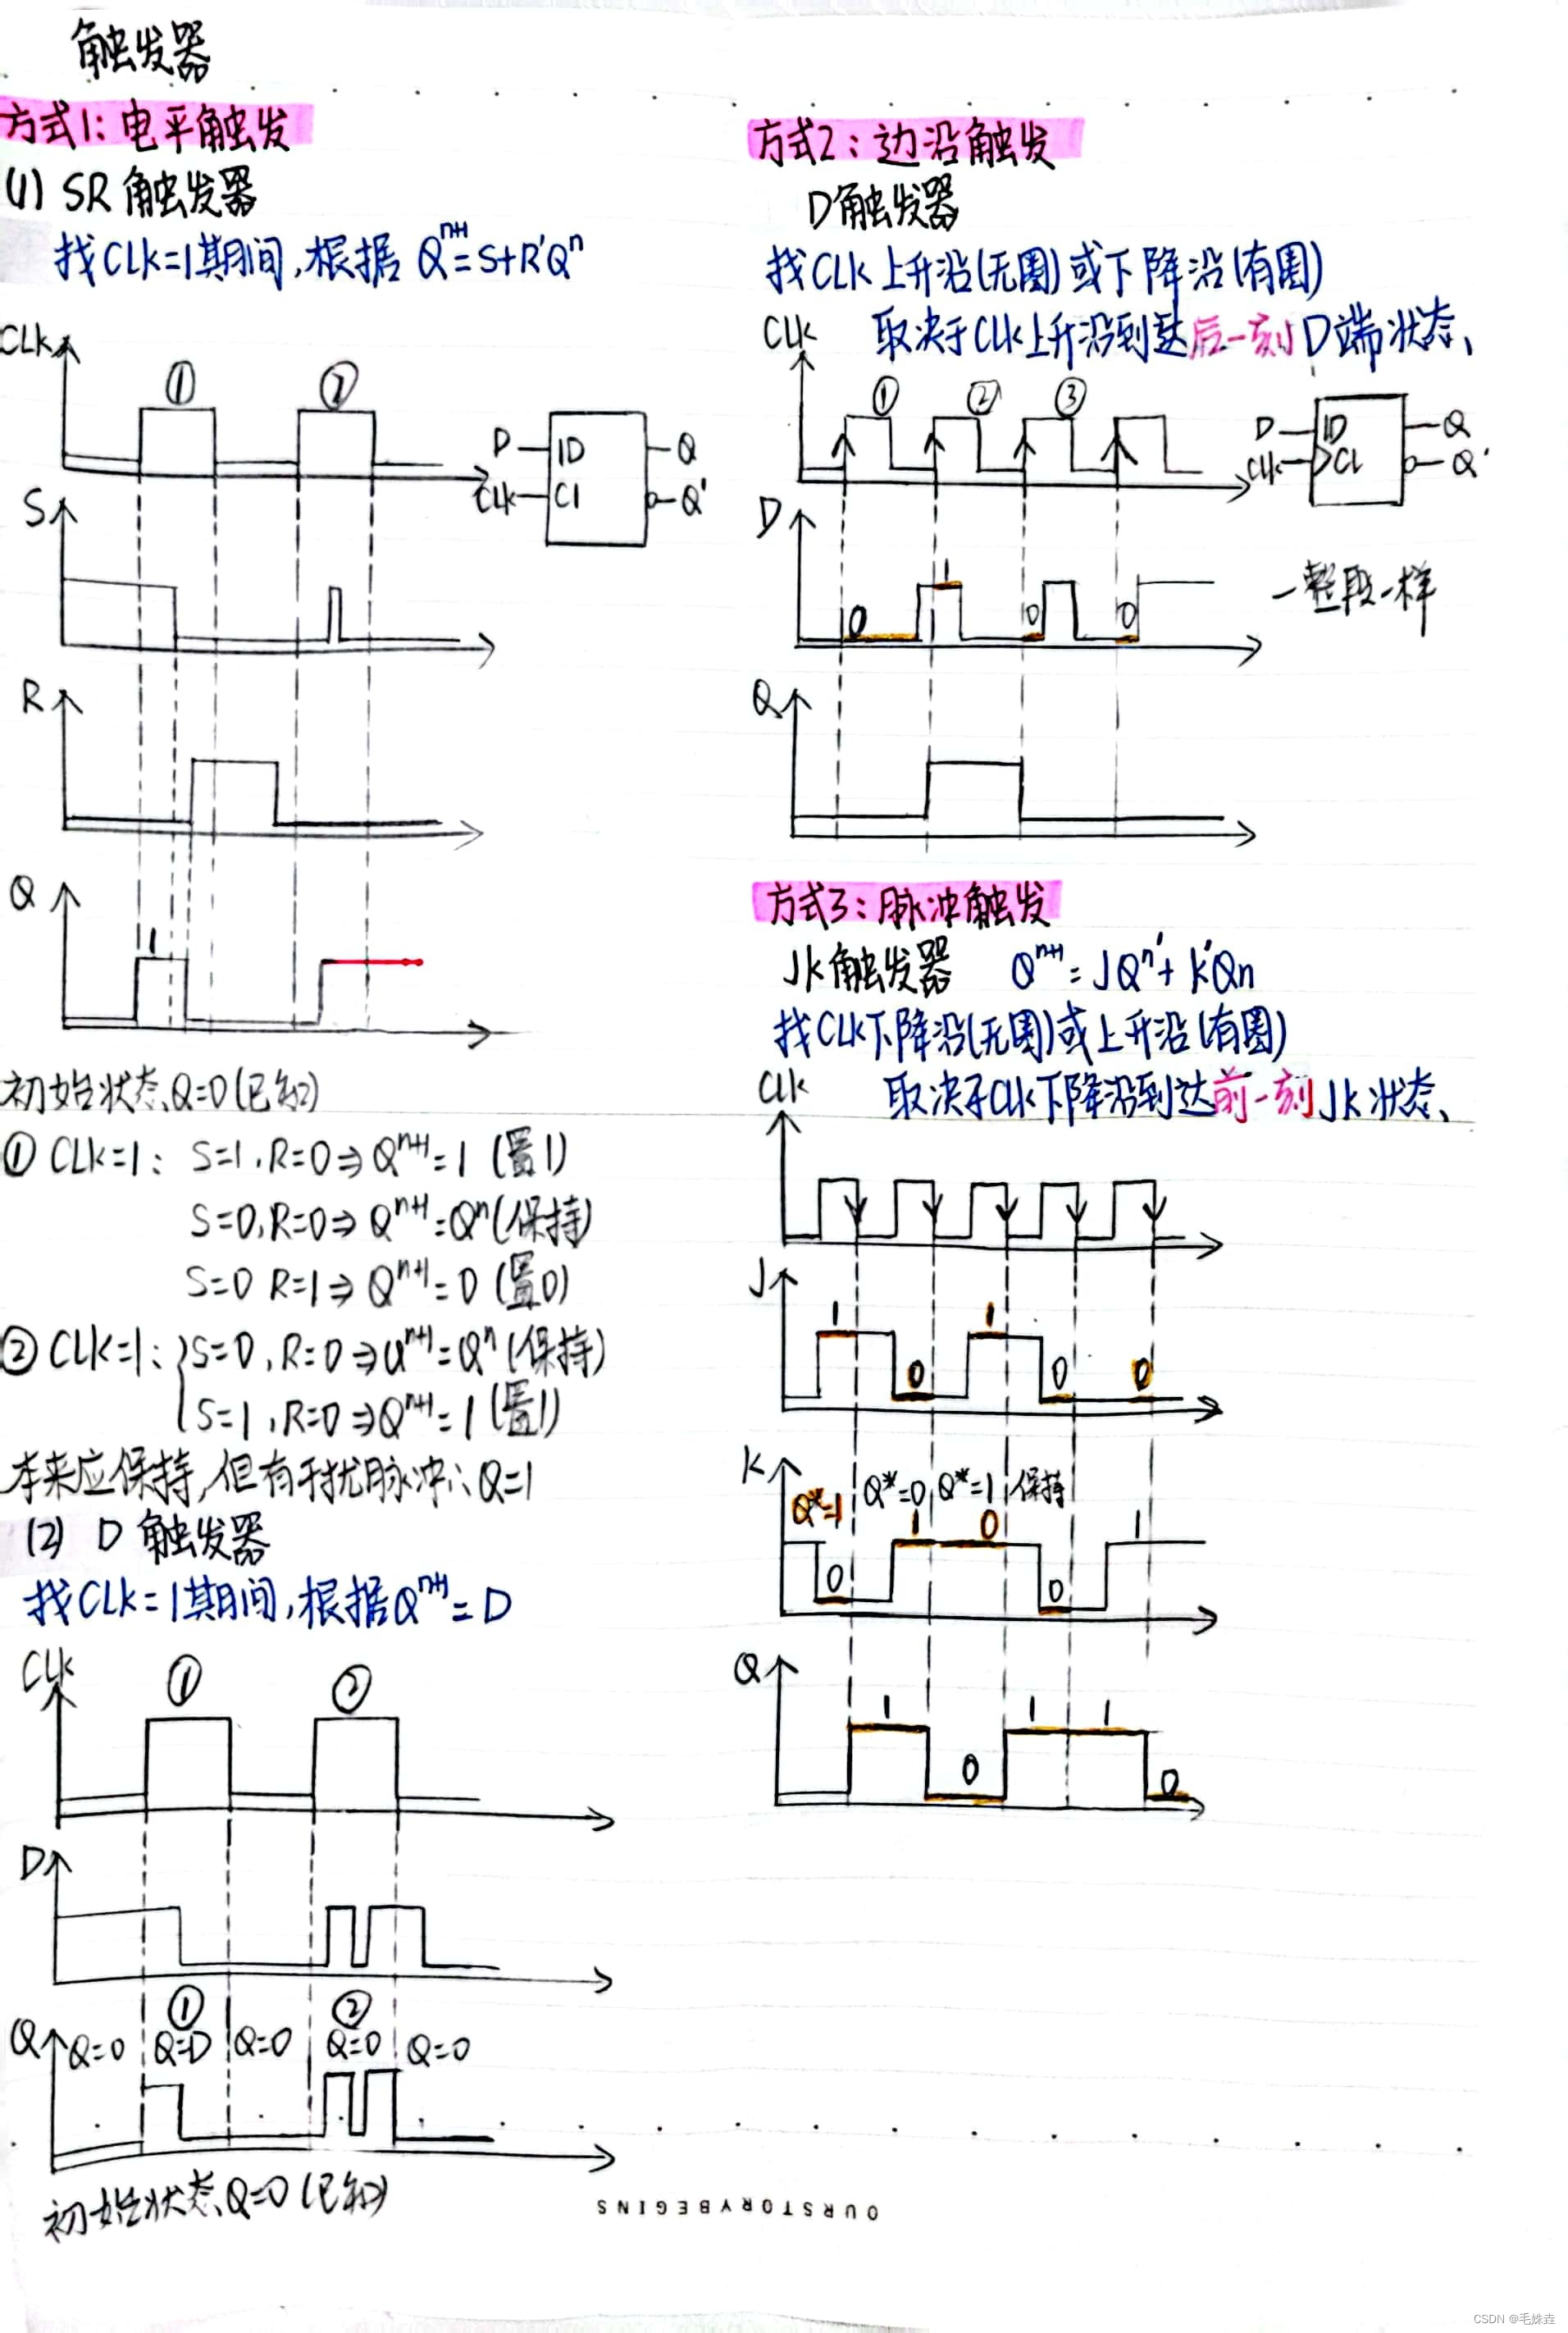 触发器
方式1：电平触发
(1) SR 触发器
找CLK=1期间,根据 Qⁿ⁺¹=S+R'Qⁿ
CLK
① ②
D 1D Q
CLK C1 Q'
S
R
Q
1
初始状态Q=0(已知)
① CLK=1： S=1,R=0⇒Qⁿ⁺¹=1 (置1)
S=0,R=0⇒Qⁿ⁺¹=Qⁿ(保持)
S=0 R=1⇒Qⁿ⁺¹=0 (置0)
② CLK=1：S=0,R=0⇒Qⁿ⁺¹=Qⁿ(保持)
S=1,R=0⇒Qⁿ⁺¹=1 (置1)
本来应保持,但有干扰脉冲∴Q=1
(2) D 触发器
找CLK=1期间,根据Qⁿ⁺¹=D
CLK
① ②
D
① ②
Q Q=0 Q=D Q=0 Q=D Q=0
初始状态Q=0(已知)
方式2：边沿触发
D触发器
找CLK上升沿(无圈)或下降沿(有圈)
取决于CLK上升沿到达后一刻D端状态、
CLK
① ② ③
D 1D Q
CLK C1 Q'
D
0 1 0 0
一整段一样
Q
方式3：脉冲触发
JK触发器 Qⁿ⁺¹=JQⁿ'+K'Qn
找CLK下降沿(无圈)或上升沿(有圈)
取决于CLK下降沿到达前一刻JK状态、
CLK
J
1 0 1 0 0
K
Q*=1 Q*=0 Q*=1 保持
0 1 0 0 1
Q
1 0 1 1 0
OURSTORYBEGINS
CSDN @毛姝垚